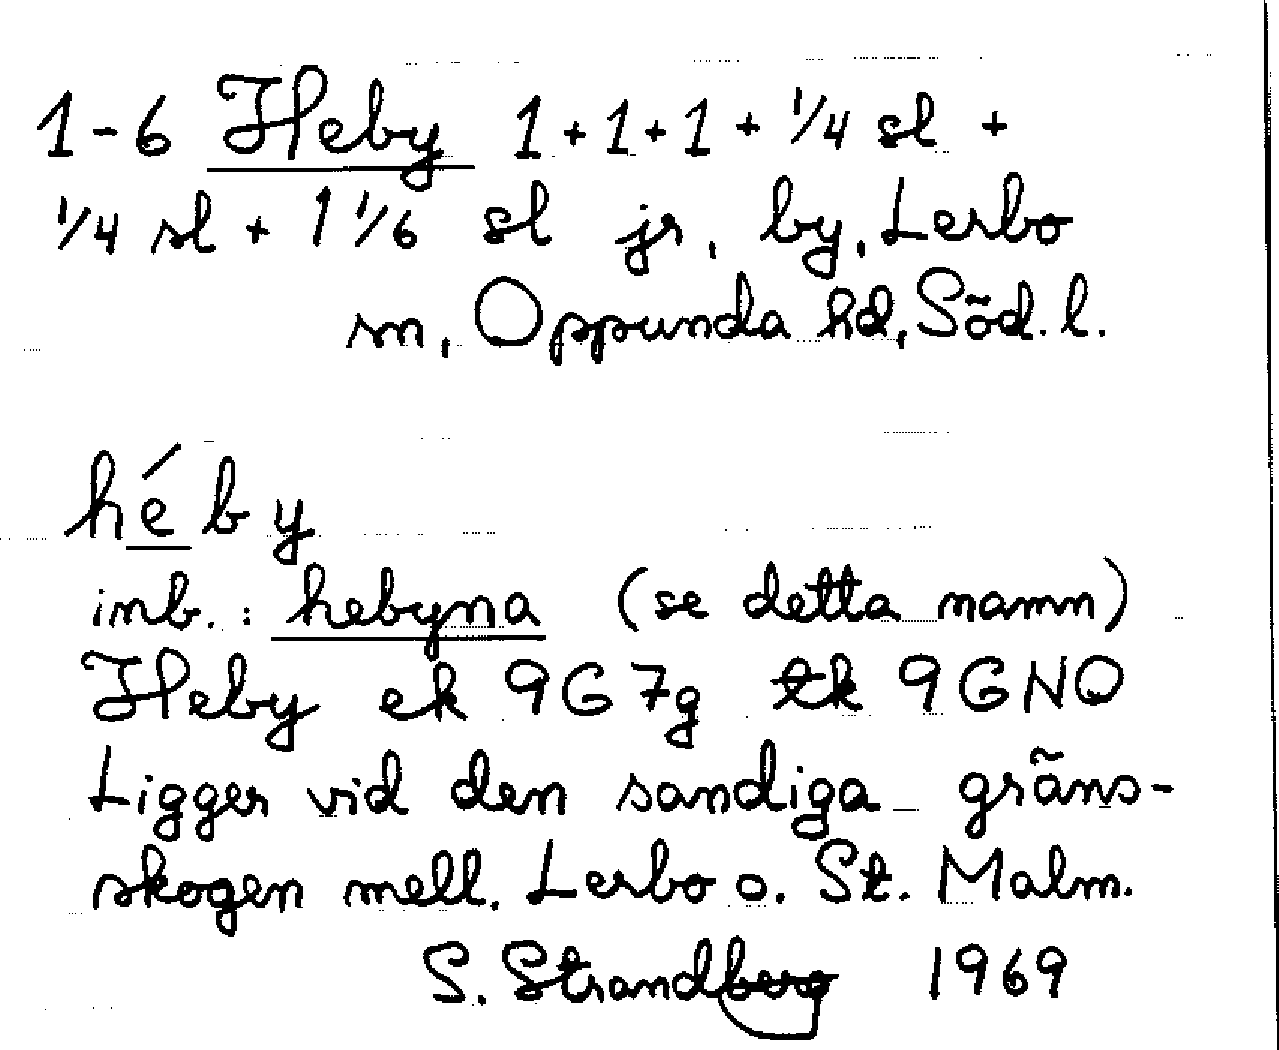 1-6 Heby 1+1+1+1/4 sl +
1/4 sl + 1 1/6 sl jr, by, Lerbo
sn, Oppunda hd, Söd. l.
héby
inb.: hebyna (se detta namn)
Heby ek 9G7g tk 9GNO
Ligger vid den sandiga gräns-
skogen mell. Lerbo o. St. Malm.
S. Strandberg 1969